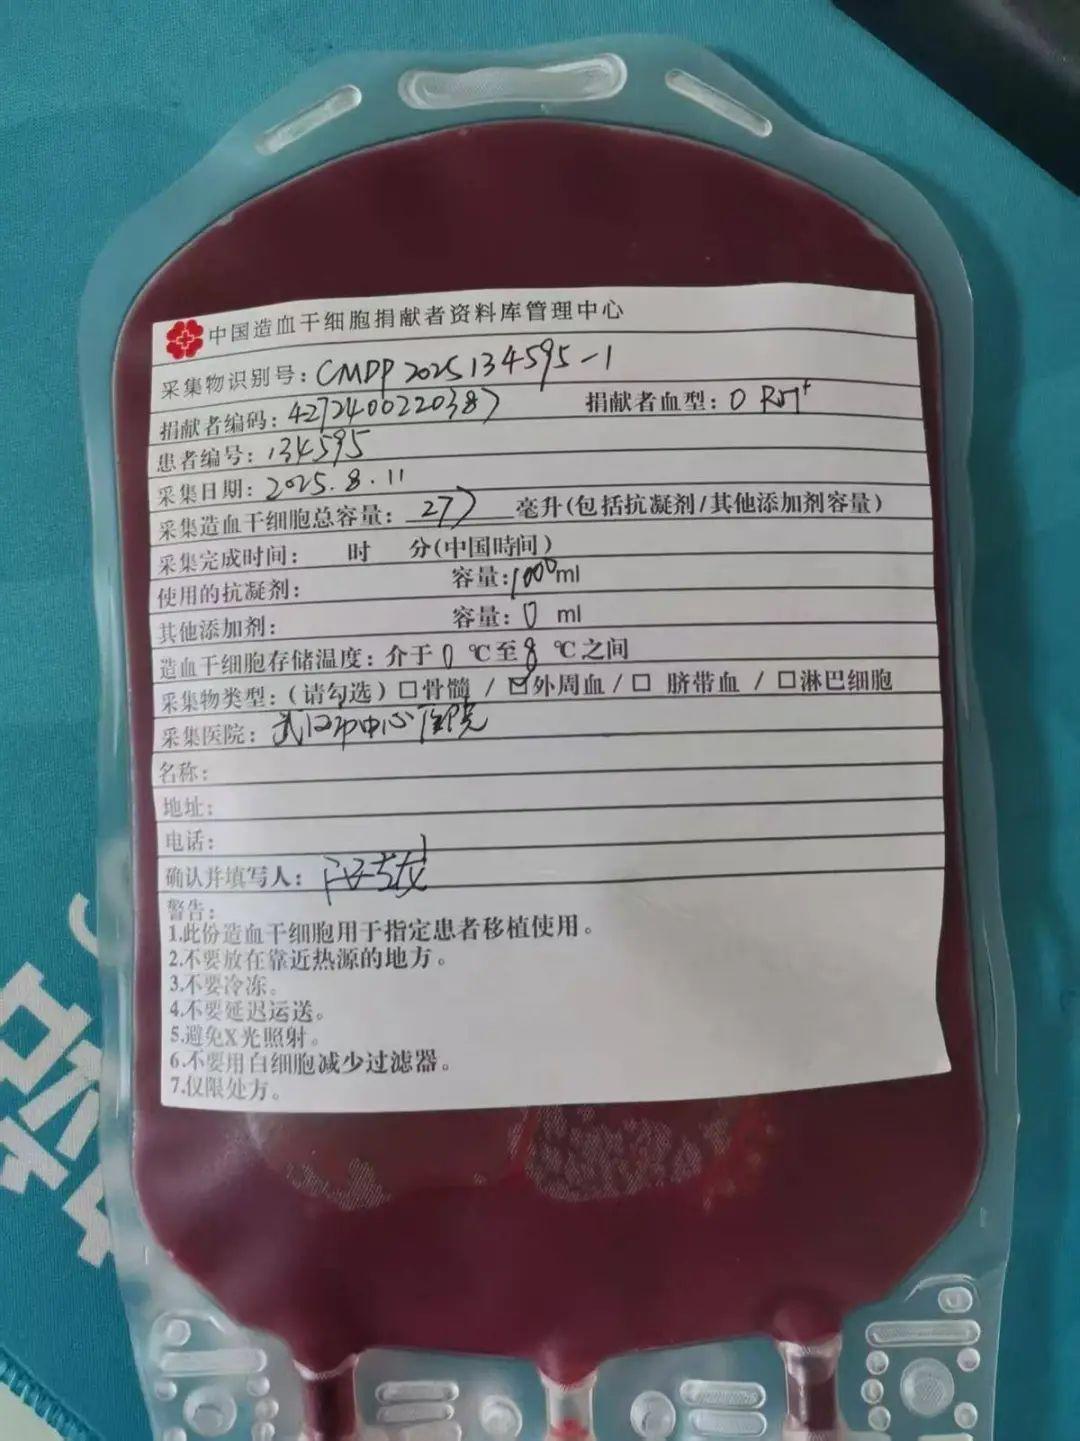 中国造血干细胞捐献者资料库管理中心
采集物识别号：CMDP 2025134595-1
捐献者编码：4272400220387 捐献者血型：O RH+
患者编号：134595
采集日期：2025.8.11
采集造血干细胞总容量：277毫升(包括抗凝剂/其他添加剂容量)
采集完成时间： 时 分(中国時间)
使用的抗凝剂： 容量：1000ml
其他添加剂： 容量：0 ml
造血干细胞存储温度：介于0℃至8℃之间
采集物类型：(请勾选)□骨髓 / ☑外周血/□ 脐带血 / □淋巴细胞
采集医院：武汉市中心医院
名称：
地址：
电话：
确认并填写人：
警告：
1.此份造血干细胞用于指定患者移植使用。
2.不要放在靠近热源的地方。
3.不要冷冻。
4.不要延迟运送。
5.避免X光照射。
6.不要用白细胞减少过滤器。
7.仅限处方。